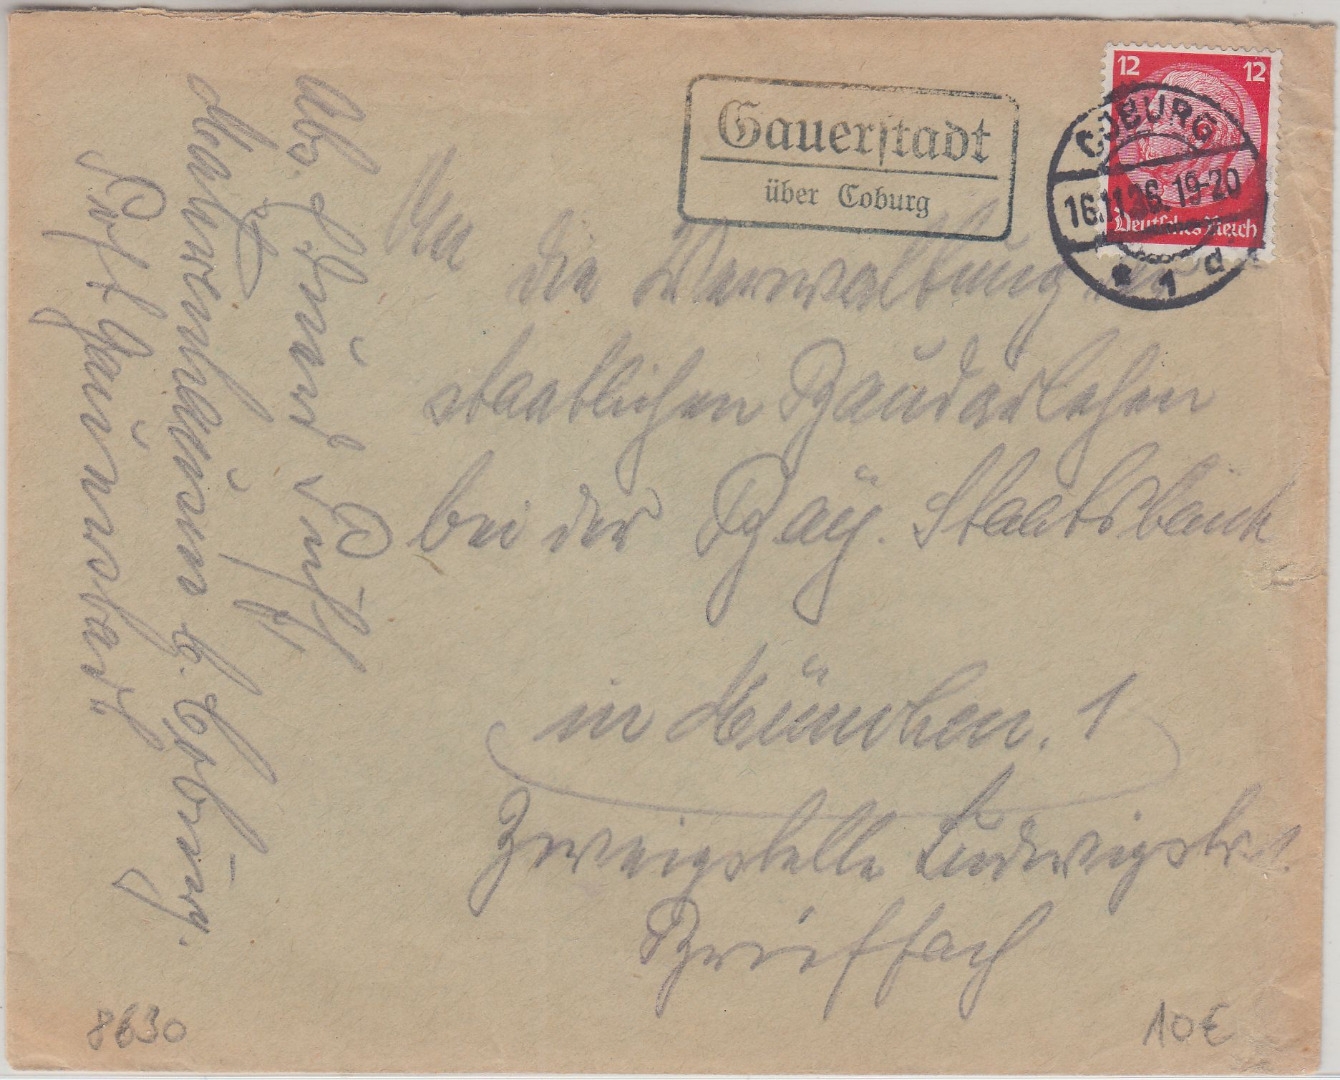 Gauerstadt
über Coburg
12 12
COBURG
16.11.36. 19-20
Deutsches Reich
* 1 d
An
die Verwaltung der
staatlichen Baudarlehen
bei der Bay. Staatsbank
in München. 1
Zweigstelle Ludwigstr. 1.
Brieffach
Abs.
b. Coburg.
Post Gauerstadt
8630
10€